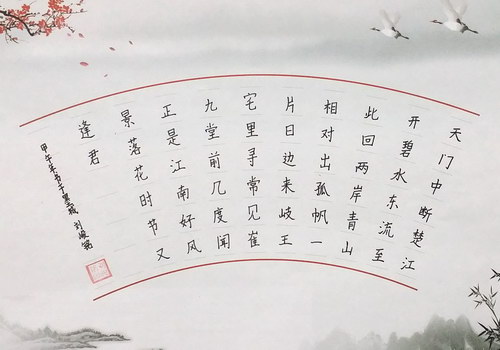 天门中断楚江
开碧水东流至
此回两岸青山
相对出孤帆一
片日边来岐王
宅里寻常见崔
九堂前几度闻
正是江南好风
景落花时节又
逢君
甲午年书于墨